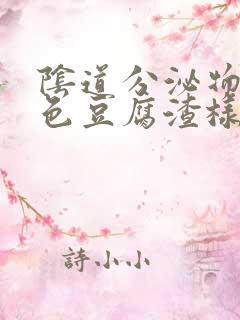 陰道分泌物
色豆腐渣樣
詩小小